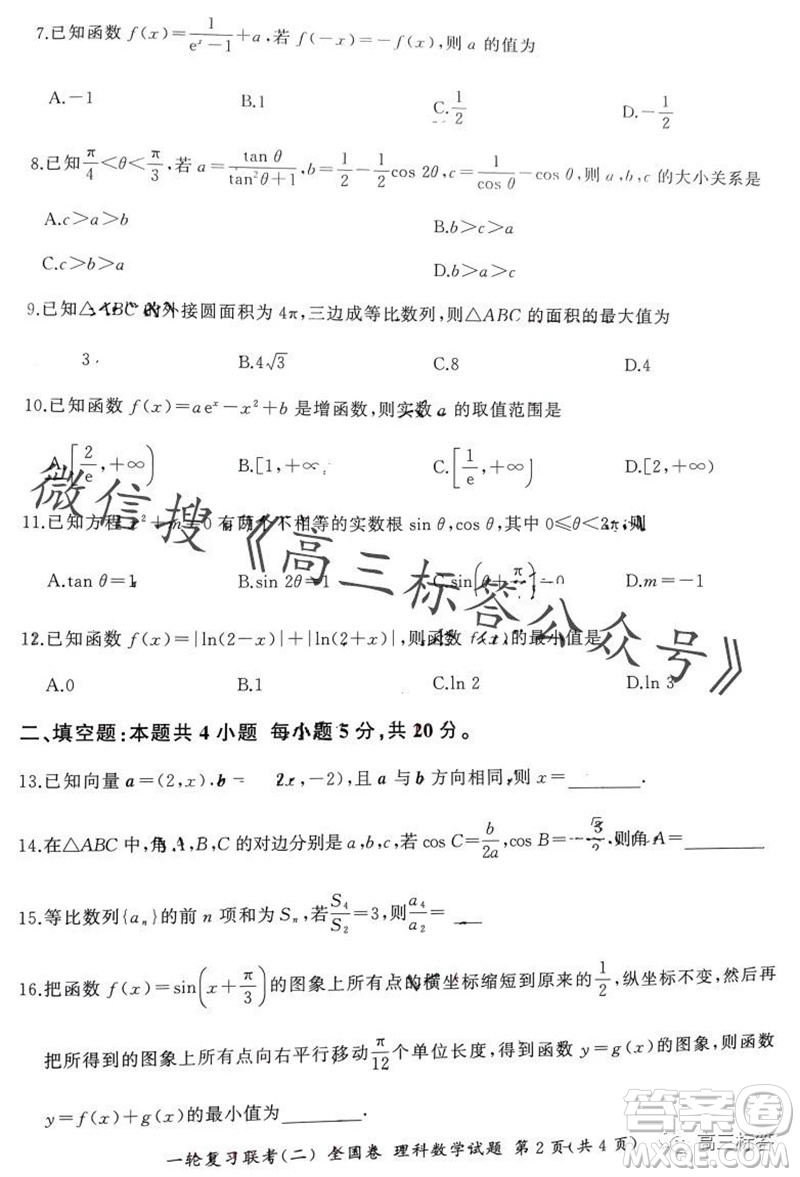 7.已知函数 f(x)=1/(eˣ-1)+a,若 f(-x)=-f(x),则 a 的值为
A.-1 B.1 C.1/2 D.-1/2
8.已知π/4<θ<π/3,若 a=tan θ/(tan²θ+1),b=1/2-1/2cos 2θ,c=1/cos θ-cos θ,则 a,b,c 的大小关系是
A.c>a>b B.b>c>a
C.c>b>a D.b>a>c
9.已知△ABC 的外接圆面积为 4π,三边成等比数列,则△ABC 的面积的最大值为
B.4√3 C.8 D.4
10.已知函数 f(x)=aeˣ-x²+b 是增函数,则实数 a 的取值范围是
A.[2/e,+∞) B.[1,+∞) C.[1/e,+∞) D.[2,+∞)
11.已知方程 有两个不相等的实数根 sin θ,cos θ,其中 0≤θ<2π,则
A.tan θ=1 B.sin 2θ=1 D.m=-1
12.已知函数 f(x)=|ln(2-x)|+|ln(2+x)|,则函数 f(x)的最小值是
A.0 B.1 C.ln 2 D.ln 3
二、填空题:本题共 4 小题 每小题 5 分,共 20 分。
13.已知向量 a=(2,x),b= x,-2),且 a 与 b 方向相同,则 x=______.
14.在△ABC 中,角 A,B,C 的对边分别是 a,b,c,若 cos C=b/2a,cos B= 则角 A=______
15.等比数列{aₙ}的前 n 项和为 Sₙ,若S₄/S₂=3,则a₄/a₂=
16.把函数 f(x)=sin(x+π/3)的图象上所有点的横坐标缩短到原来的1/2,纵坐标不变,然后再
把所得到的图象上所有点向右平行移动π/12个单位长度,得到函数 y=g(x)的图象,则函数
y=f(x)+g(x)的最小值为______.
一轮复习联考(二) 全国卷 理科数学试题 第 2 页(共 4 页)
微信搜《高三标答公众号》
答案圈
高三标答